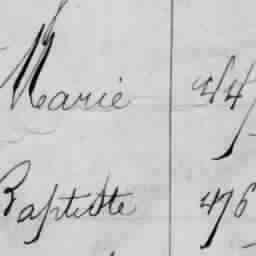 Marie
Baptiste 476